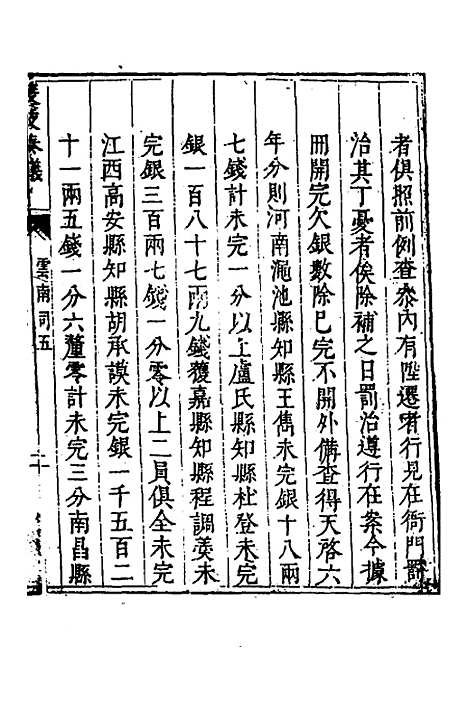 者俱照前例查叅內有陞遷者行見在衙門罰
治其丁憂者俟除補之日罰治遵行在案今據
冊開完欠銀數除已完不開外備查得天啓六
年分則河南澠池縣知縣王雋未完銀十八兩
七錢計未完一分以上盧氏縣知縣杜登未完
銀一百八十七兩九錢獲嘉縣知縣程調羹未
完銀三百兩七錢一分零以上二員俱全未完
江西高安縣知縣胡承謨未完銀一千五百二
十一兩五錢一分六釐零計未完三分南昌縣
奏議
雲南司五